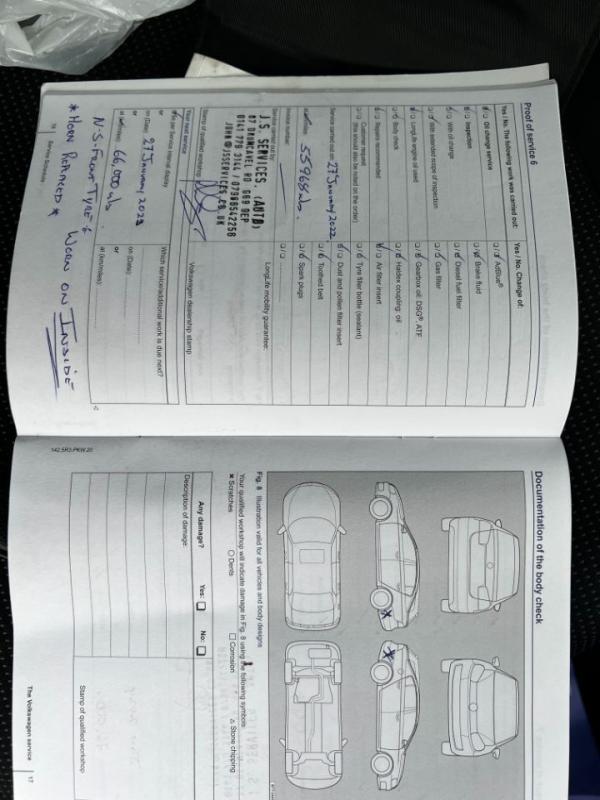 Proof of service 6
Yes / No. The following work was carried out:
Oil change service
Inspection
With oil change
With extended scope of inspection
LongLife engine oil used
Body check
Repairs recommended
Customer request:
(this should also be noted on the order)
Service carried out on: 27 January 2022
55968 mls.
Invoice number:
Service carried out by:
J.S. SERVICES. (AUTO)
67 DRUMCAVEL RD G69 9EP
JOHN@JSSERVICES.CO.UK
Stamp of qualified workshop
Your next service
As per service interval display
on (Date): 27 January 2023
at (km/miles): 66,000 mls
N-S-Front Tyre - 6
* Horn Repaired *
Worn on Inside
16 Service Schedule
Yes / No. Change of:
AdBlue®
Brake fluid
Diesel fuel filter
Gas filter
Gearbox oil: DSG®, ATF
Haldex coupling: oil
Air filter insert
Tyre filler bottle (sealant)
Dust and pollen filter insert
Toothed belt
Spark plugs
LongLife mobility guarantee:
Volkswagen dealership stamp
Which service/additional work is due next?
on (Date):
or
at (km/miles):
142.5R3.PKW.20
Documentation of the body check
Fig. 8 Illustration valid for all vehicles and body designs
Your qualified workshop will indicate damage in Fig. 8 using the following symbols
× Scratches ○ Dents □ Corrosion △ Stone chipping
Any damage? Yes: No:
Description of damage:
Stamp of qualified workshop
The Volkswagen service 17